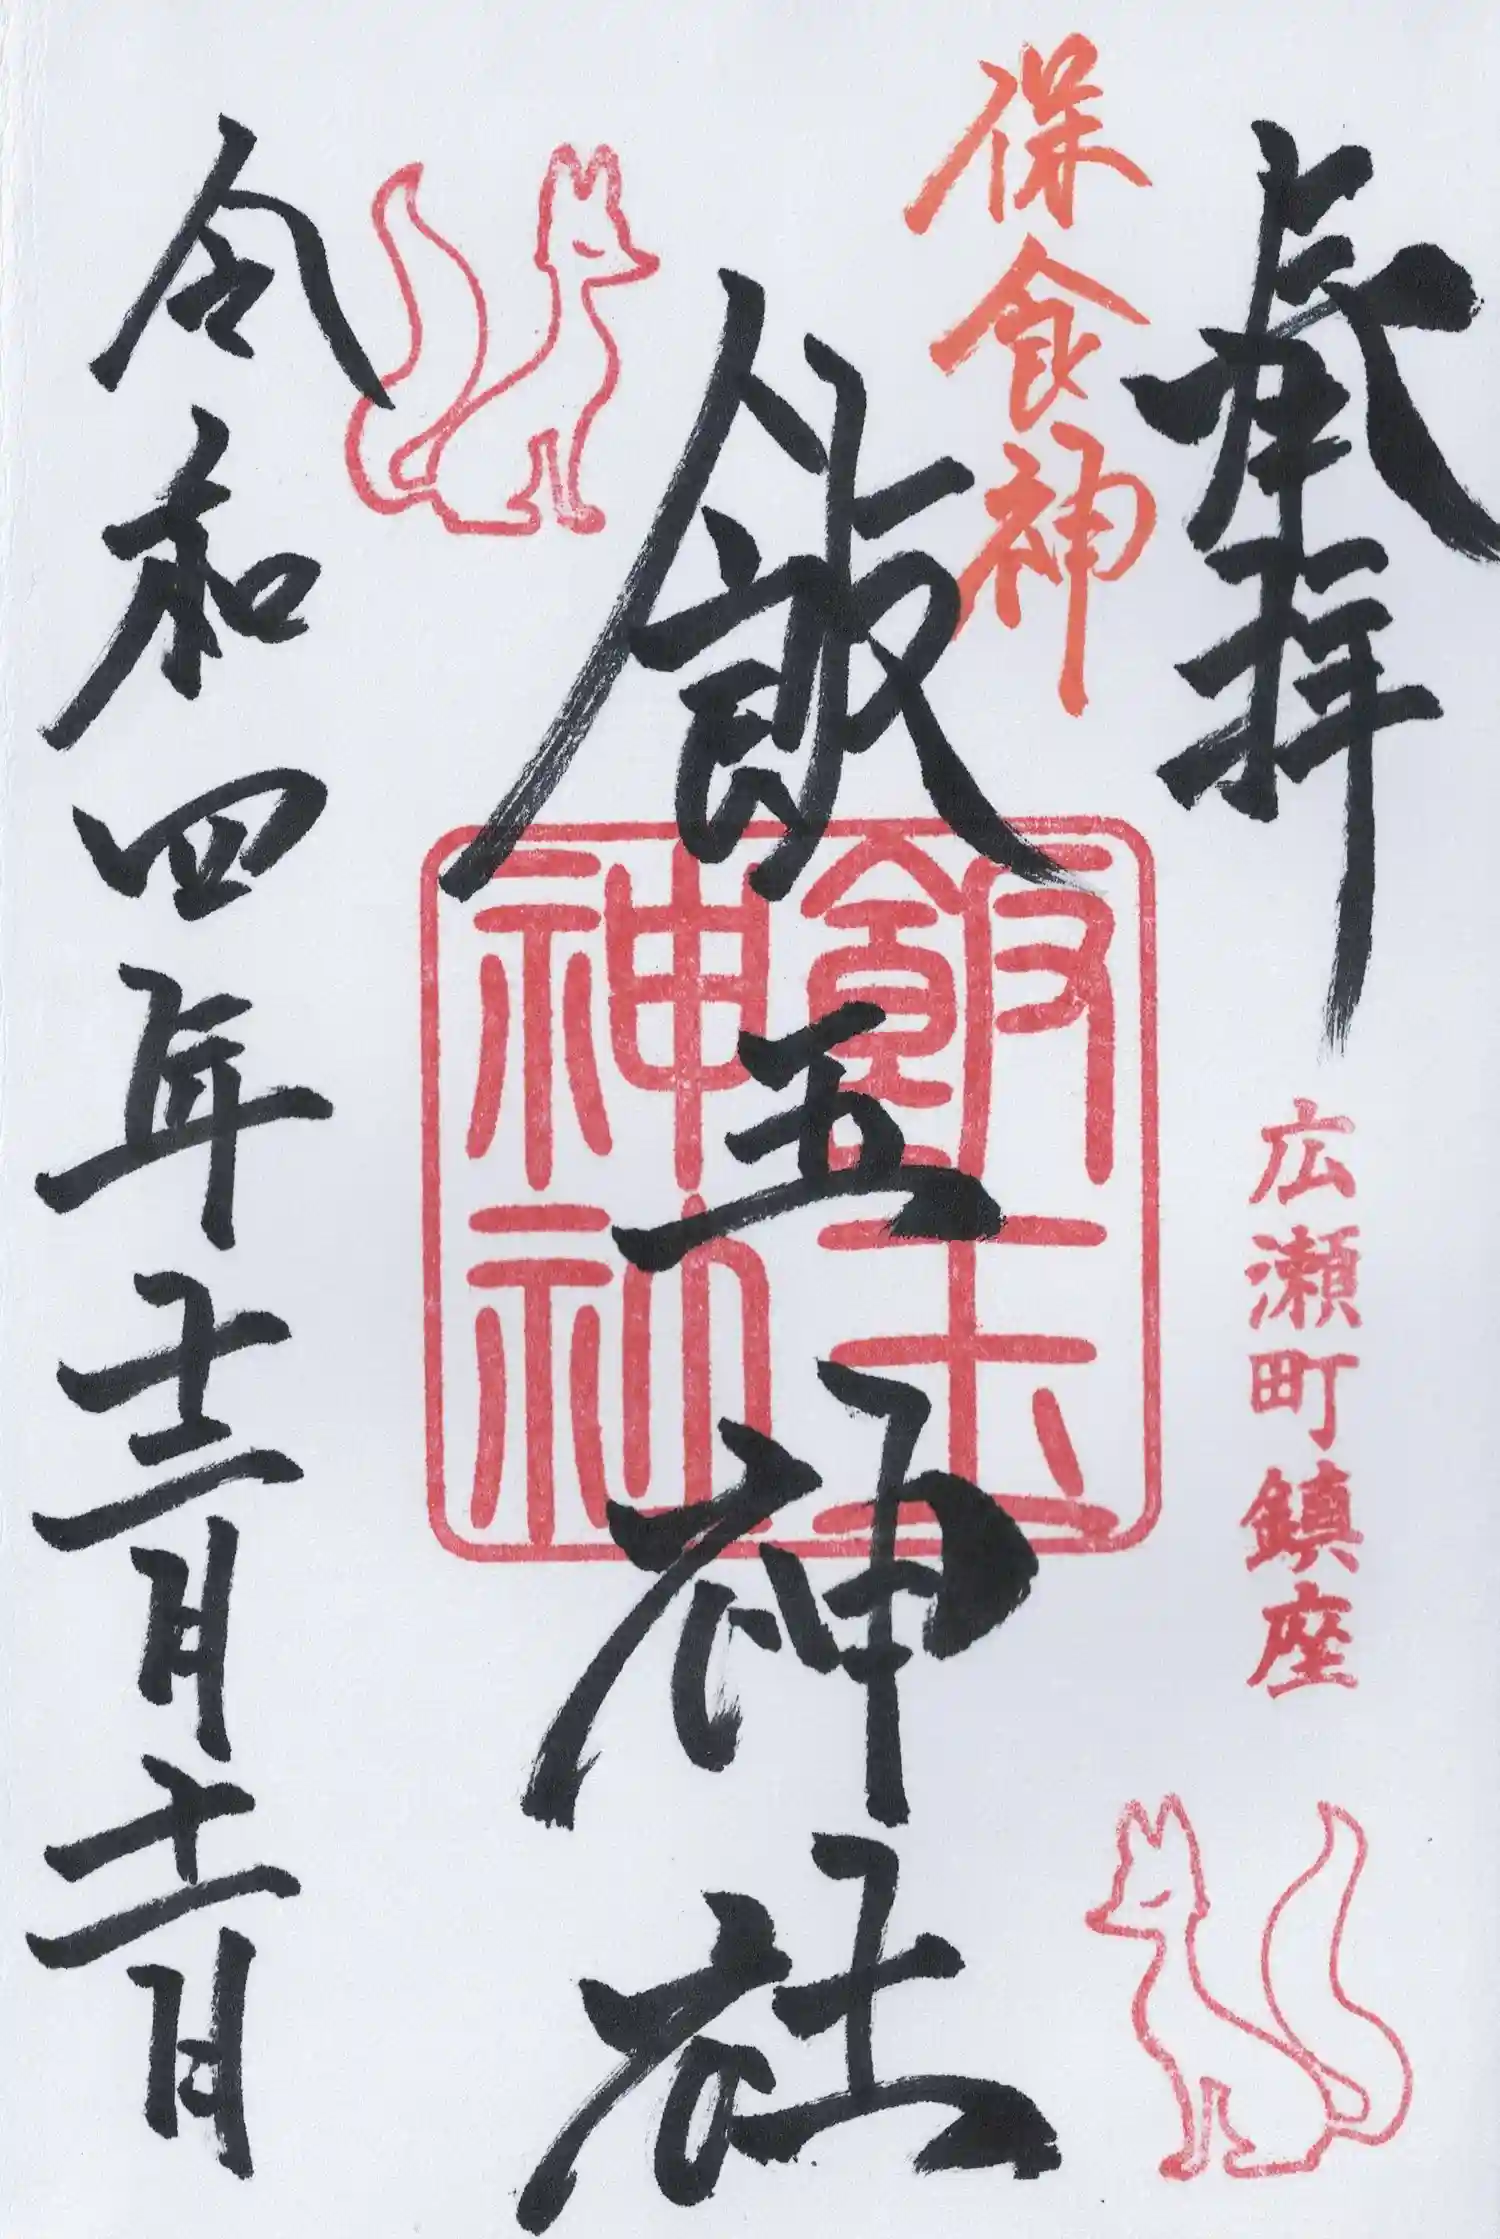 奉拝
広瀬町鎮座
保食神
飯玉神社
飯玉
神社
令和四年十二月十二日